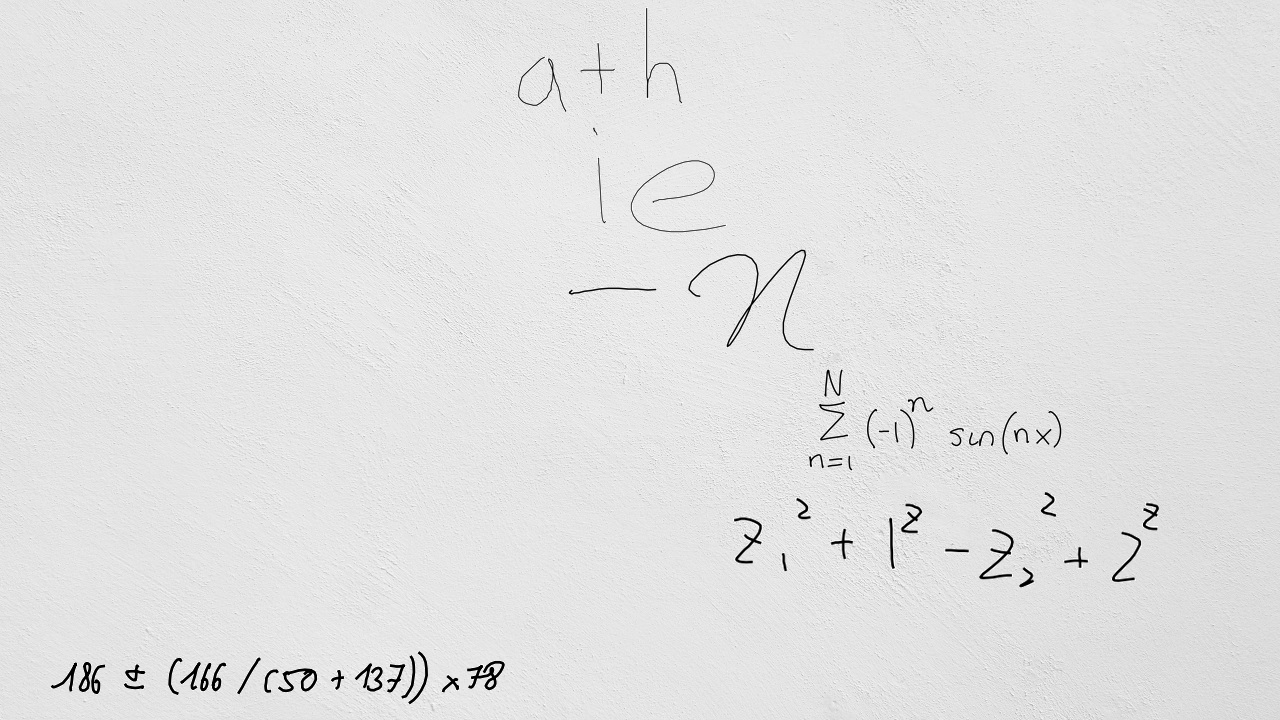 a+h
ie
-n
\sum_{n=1}^{N} (-1)^n sin(nx)
z_1^2 + 1^z - z_2^2 + 2^z
186 ± (166 / (50 + 137)) × 78